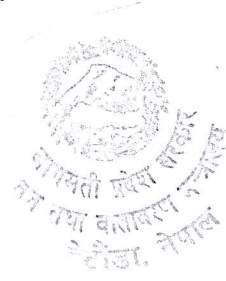 बागमती प्रदेश सरकार
वन तथा वातावरण मन्त्रालय
हेटौंडा, नेपाल